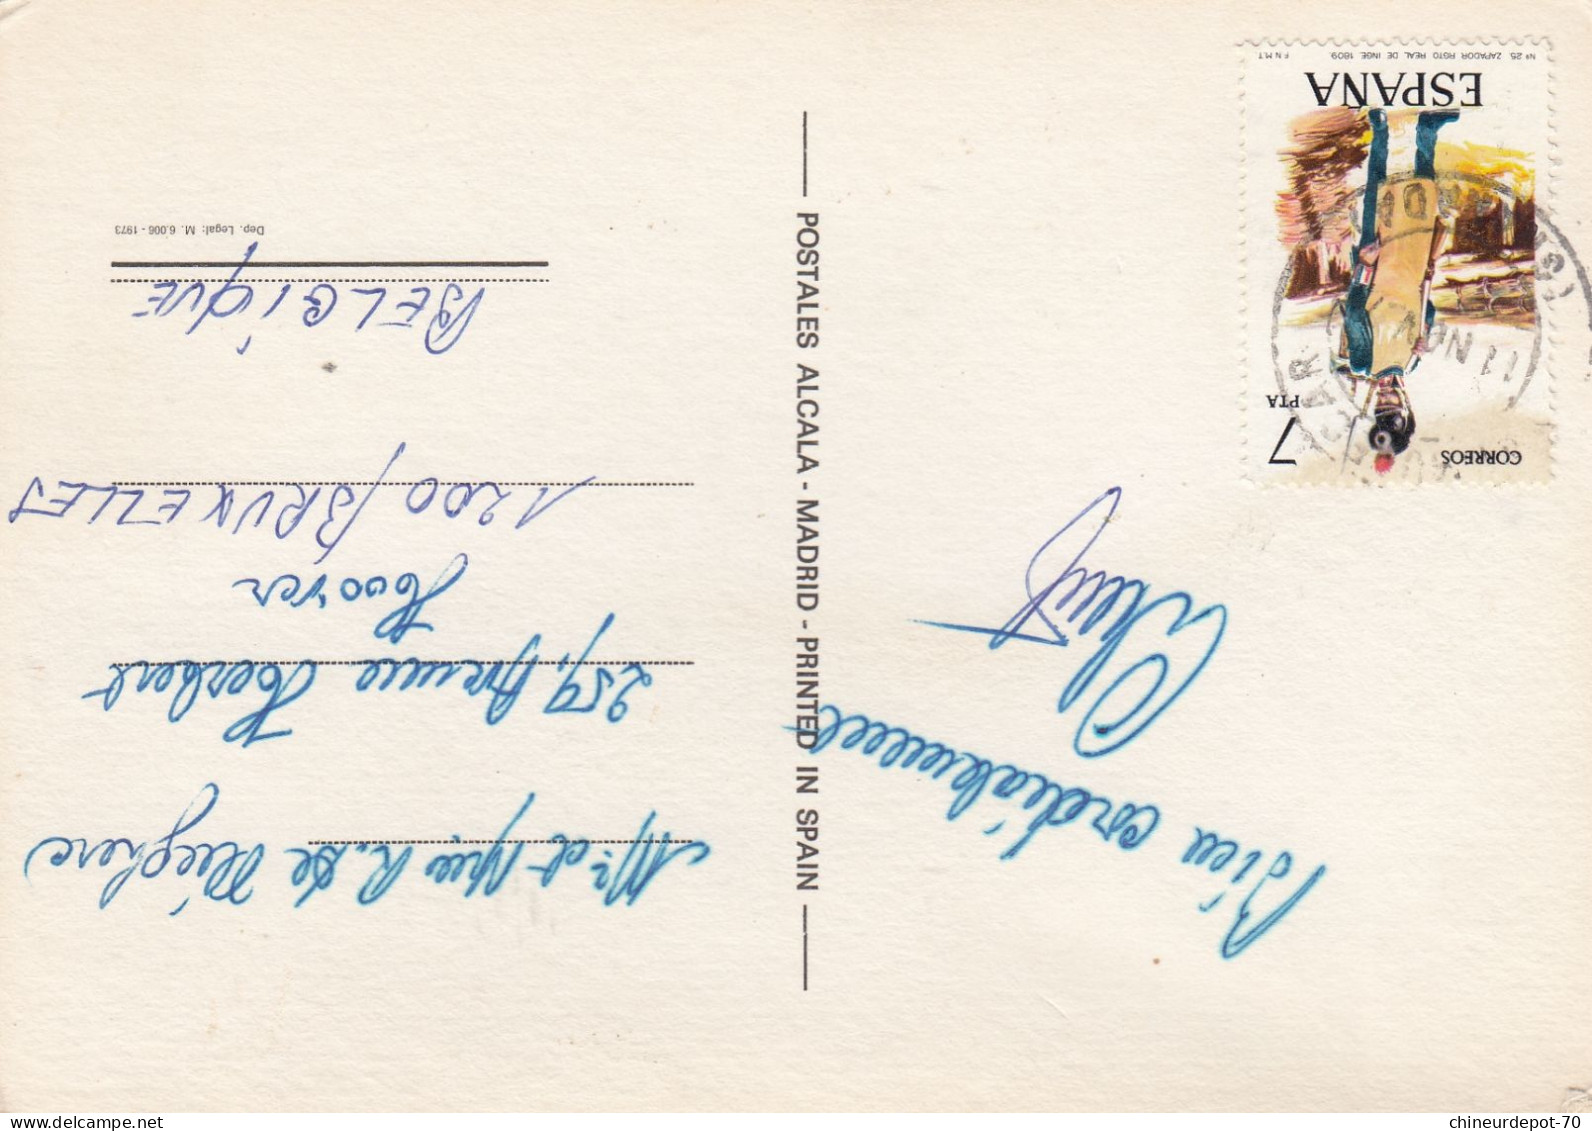 Bien cordialement
Mr et Mme R. De
259, Avenue Herbert
Hoover
1200 BRUXELLES
BELGIQUE
Dep. Legal: M. 6.006 - 1973
POSTALES ALCALA - MADRID - PRINTED IN SPAIN
CORREOS
7
PTA
11 NOV
ESPAÑA
Nº 25. ZAPADOR RGTO REAL DE INGE 1809.
F.N.M.T.
chineurdepot-70